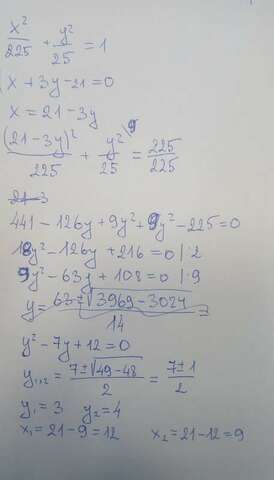 x²/225 + y²/25 = 1
x + 3y - 21 = 0
x = 21 - 3y
(21-3y)²/225 + y²/25 \9 = 225/225
21-3
441 - 126y + 9y² + 9y² - 225 = 0
18y² - 126y + 216 = 0 | 2
9y² - 63y + 108 = 0 | 9
y = 63±√3969-3024/14 =
y² - 7y + 12 = 0
y₁,₂ = 7±√49-48/2 = 7±1/2
y₁ = 3 y₂ = 4
x₁ = 21-9 = 12 x₂ = 21-12 = 9